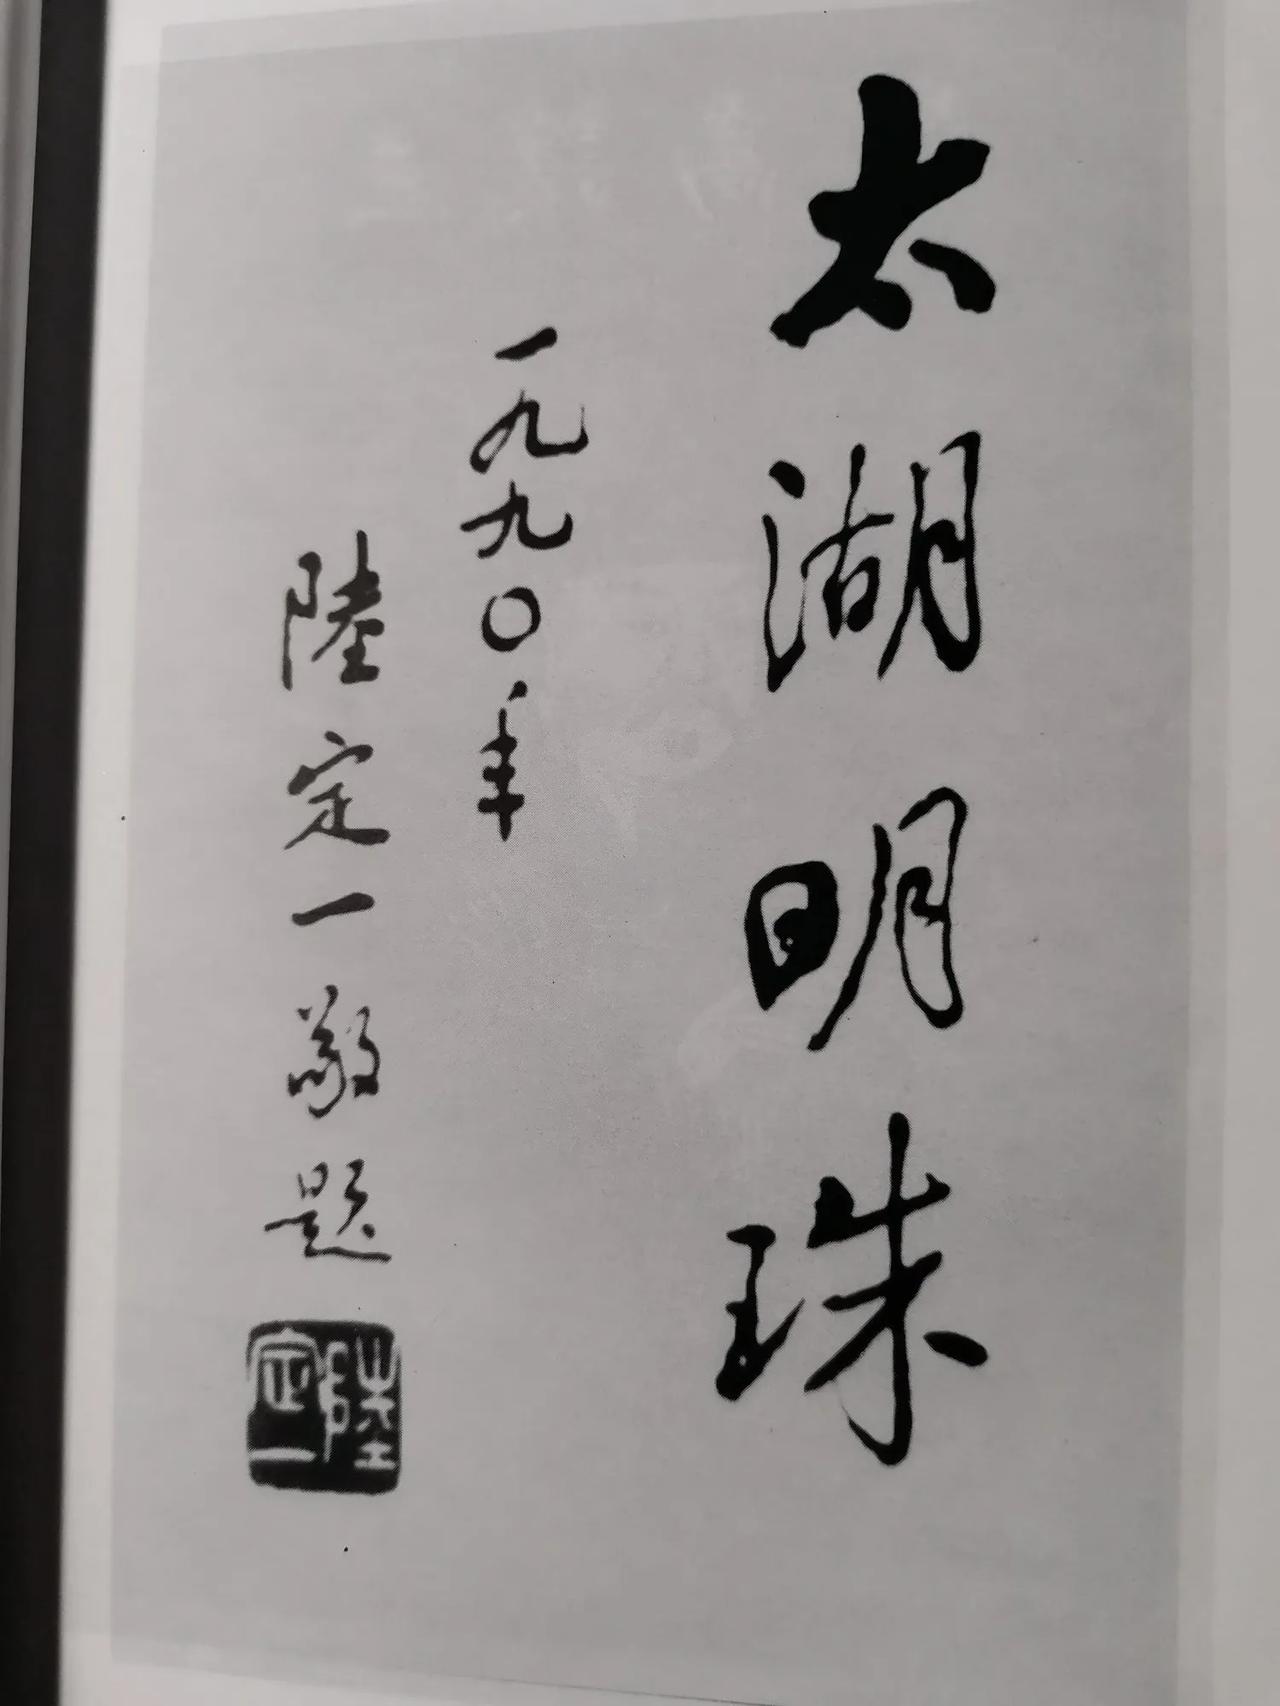 太湖明珠
一九九〇年
陸定一敬题
陸定一